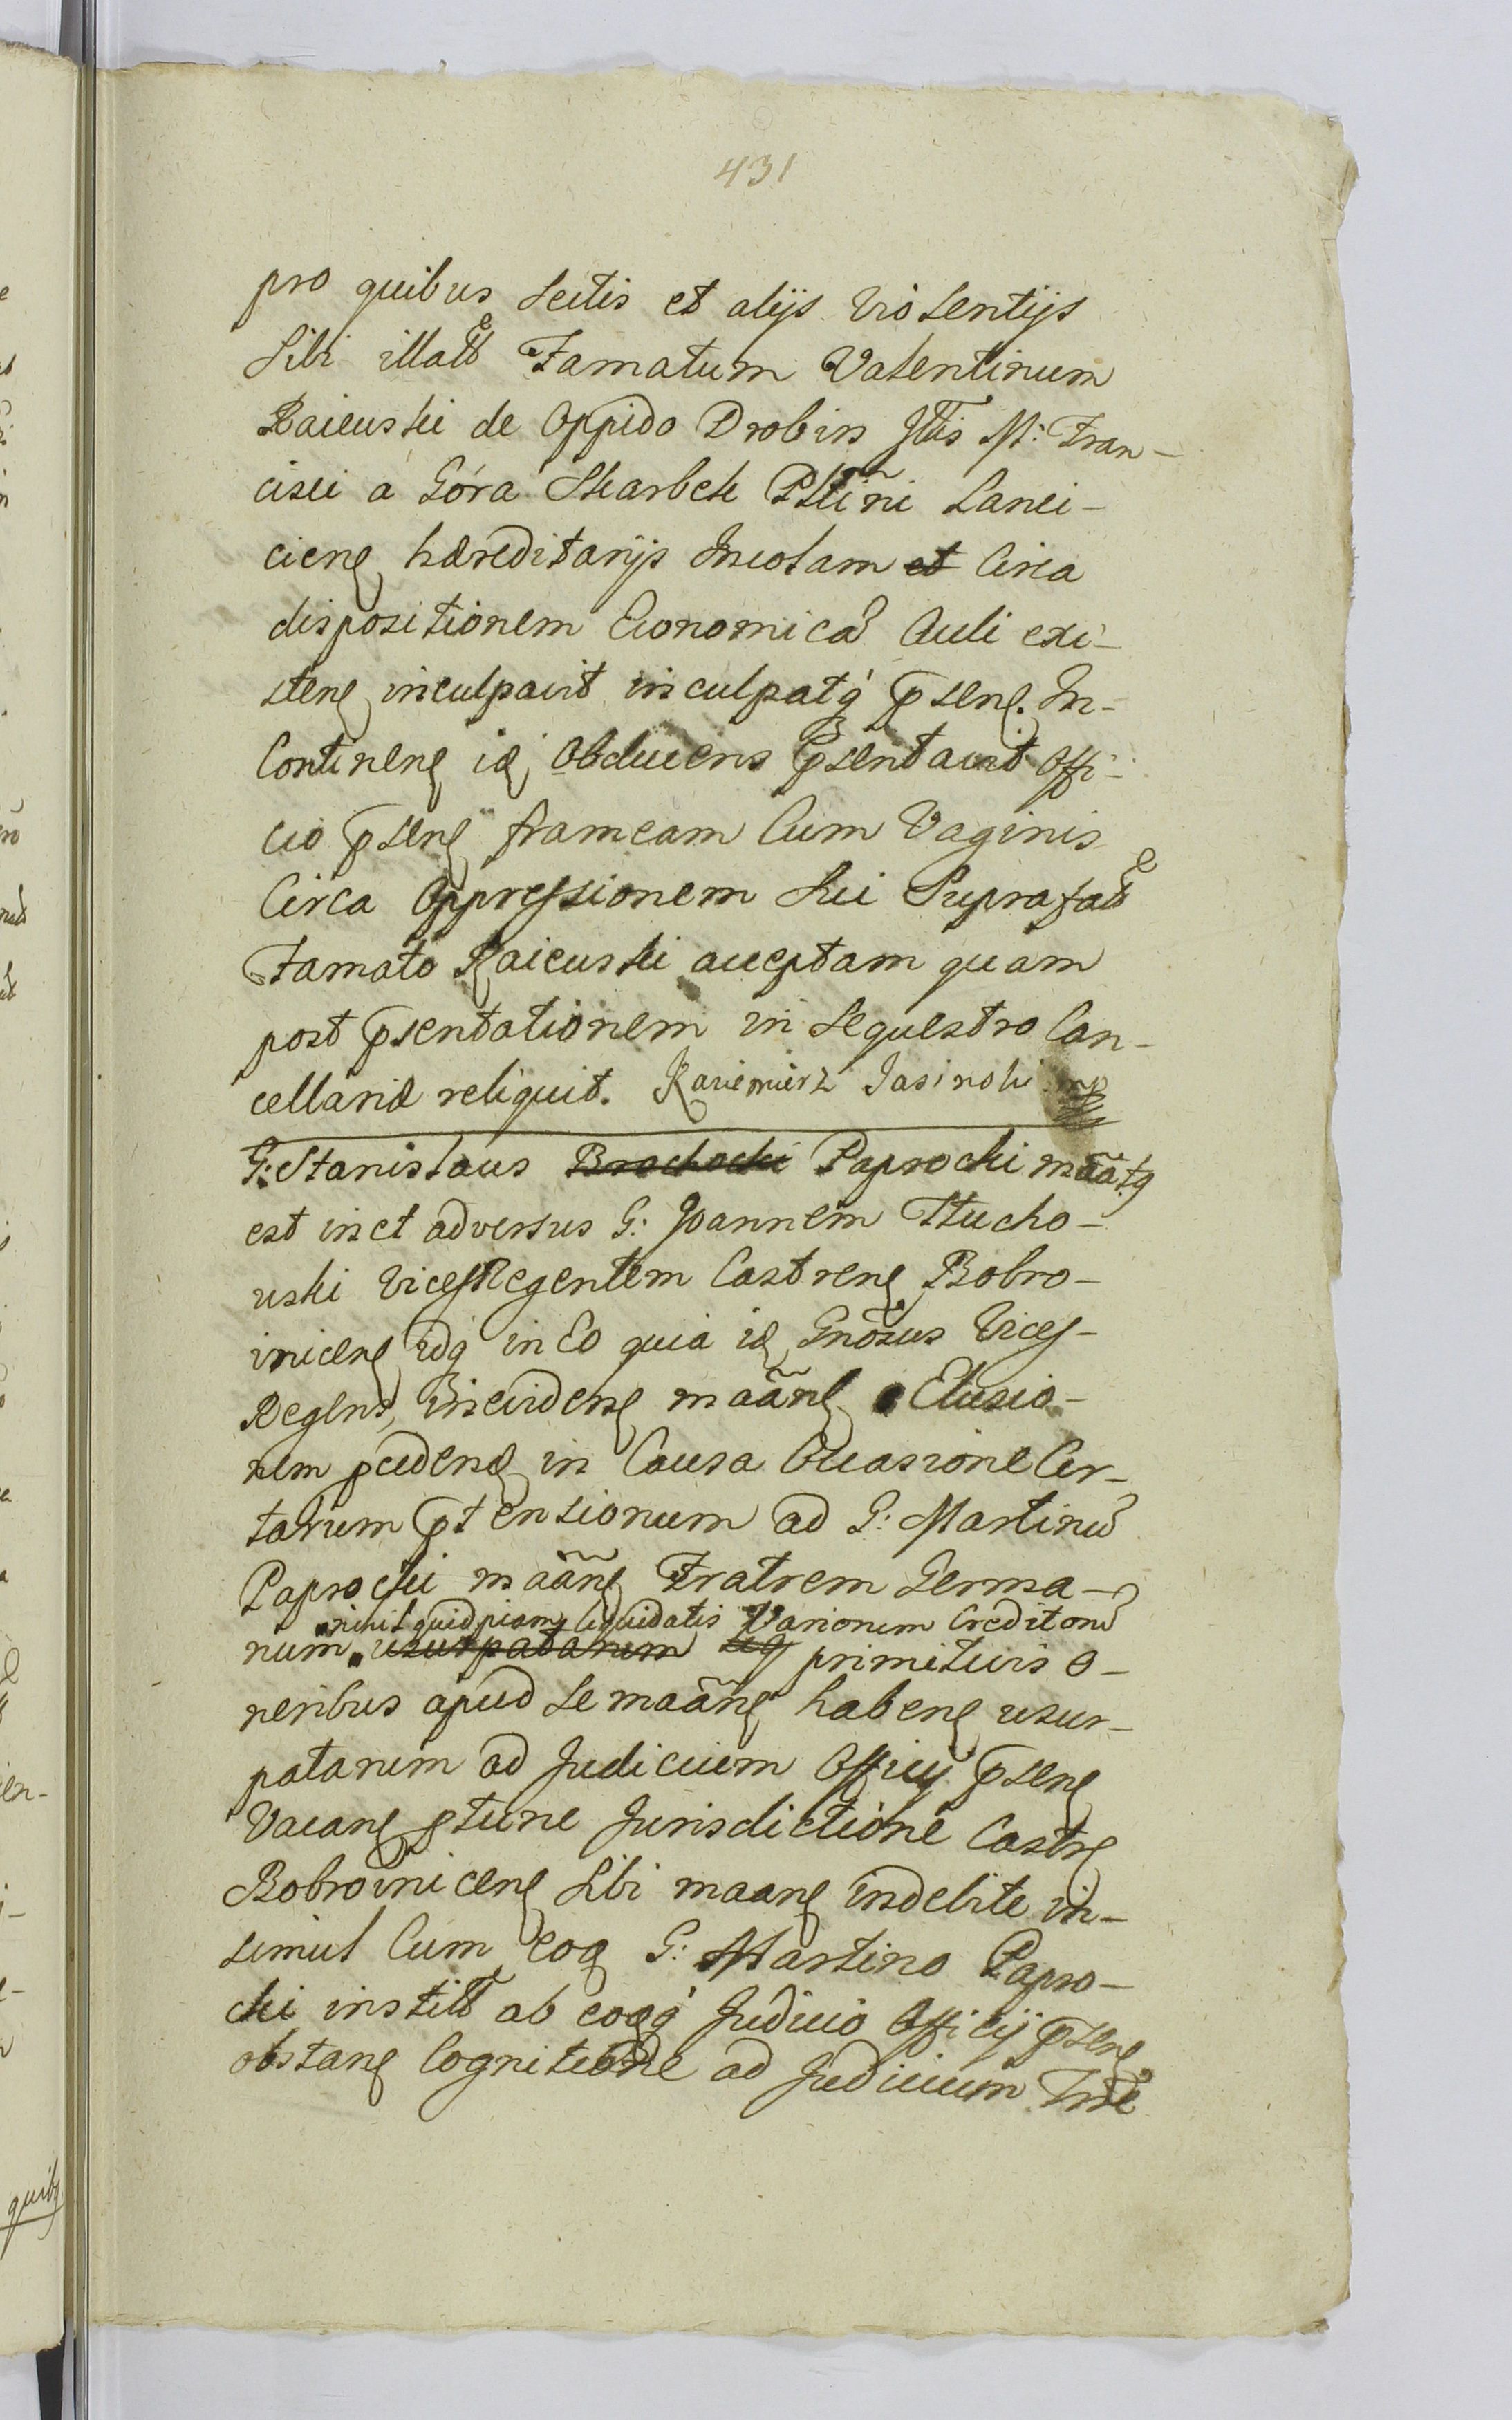 431
pro quibus Scitis et alijs Violentijs
Sibi illatt Famatum Valentinum
Raiewski de Oppido Drobin Jllis M: Fran-
cisci a Góra Skarbek Pttini Lanci-
ciens hæreditarijs Incolam et Circa
dispositionem Economicã Auli exi-
sten inculpavit inculpatq́ psens. In-
Continens id́ Obducens psentavit Offi-
cio psens frameam Cum Vaginis
Circa Oppressionem Sui Suprafatt
Famato Raiewski acceptam quam
post psentationem in Sequestro Can-
cellariæ reliquit. Kazimierz Jasinski mp
G: Stanislaus Brochocki Paprocki mããtq
est in et adversus G: Joannem Tłucho-
wski ViceRegentem Castrens Bobro-
wnicens idq in Eo quia id Gnõsus Vices-
Regens, Invidens mããns Elusio-
nem pcedens in Causa Occasione Cer-
tarum ptensionum ad G: Martinũ
Paprocki mããns Fratrem Germa-
nihil quidpiam liquidatis Variorum Creditorũ
num usurpatarum usq primitivis o-
neribus apud Se maãns habens usur-
patarum ad Judicium Officij psens
Vacans ptunc Jurisdictione Castrs
Bobrownicens Sibi maans indebite in-
simul Cum eoq G: Martino Papro-
cki institt ab eoqq́ Judicio Officij psens
obstans Cognitione ad Judicium
quibq